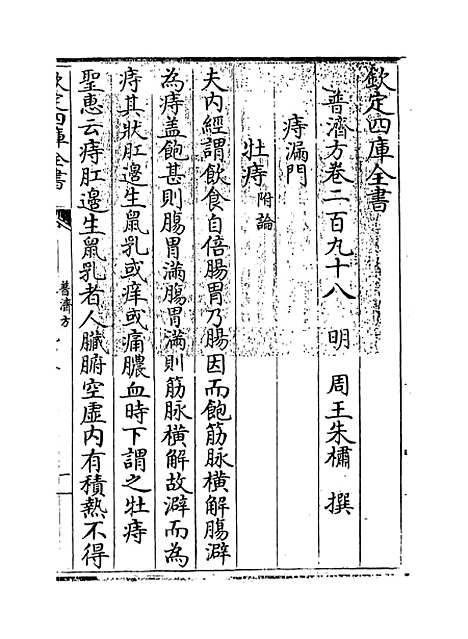 欽定四庫全書
普濟方卷二百九十八　明　周王朱橚　撰
痔漏門
牡痔附論
夫内經謂飲食自倍腸胃乃腸因而飽筋脉橫解腸澼
為痔盖飽甚則腸胃滿腸胃滿則筋脉橫解故澼而為
痔其狀肛邊生䑕乳或痒或痛膿血時下謂之牡痔
聖惠云痔肛邊生䑕乳者人臟腑空虚内有積熱不得
欽定四庫全書
普濟方